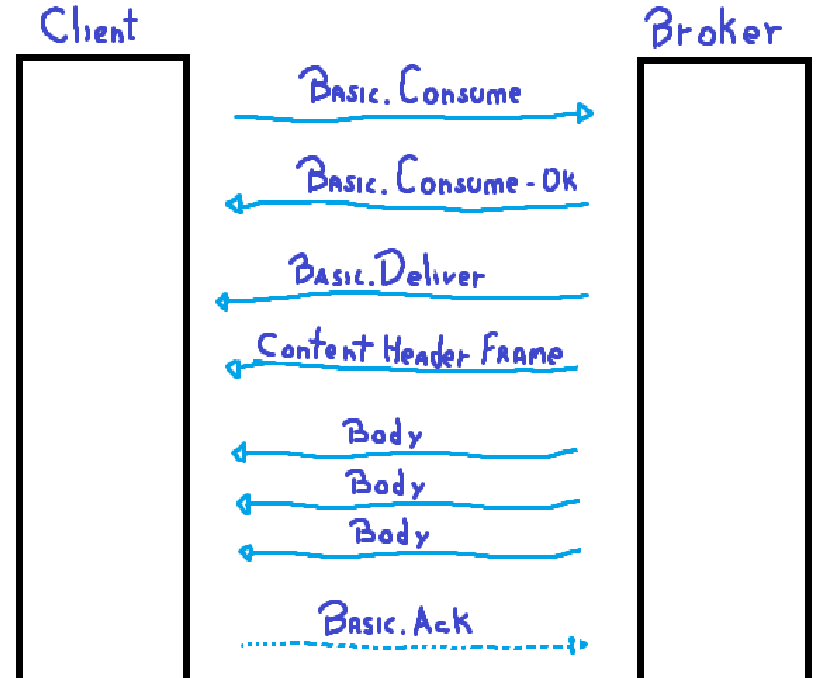 Client
Broker
Basic.Consume
Basic.Consume-OK
Basic.Deliver
Content Header Frame
Body
Body
Body
Basic.Ack